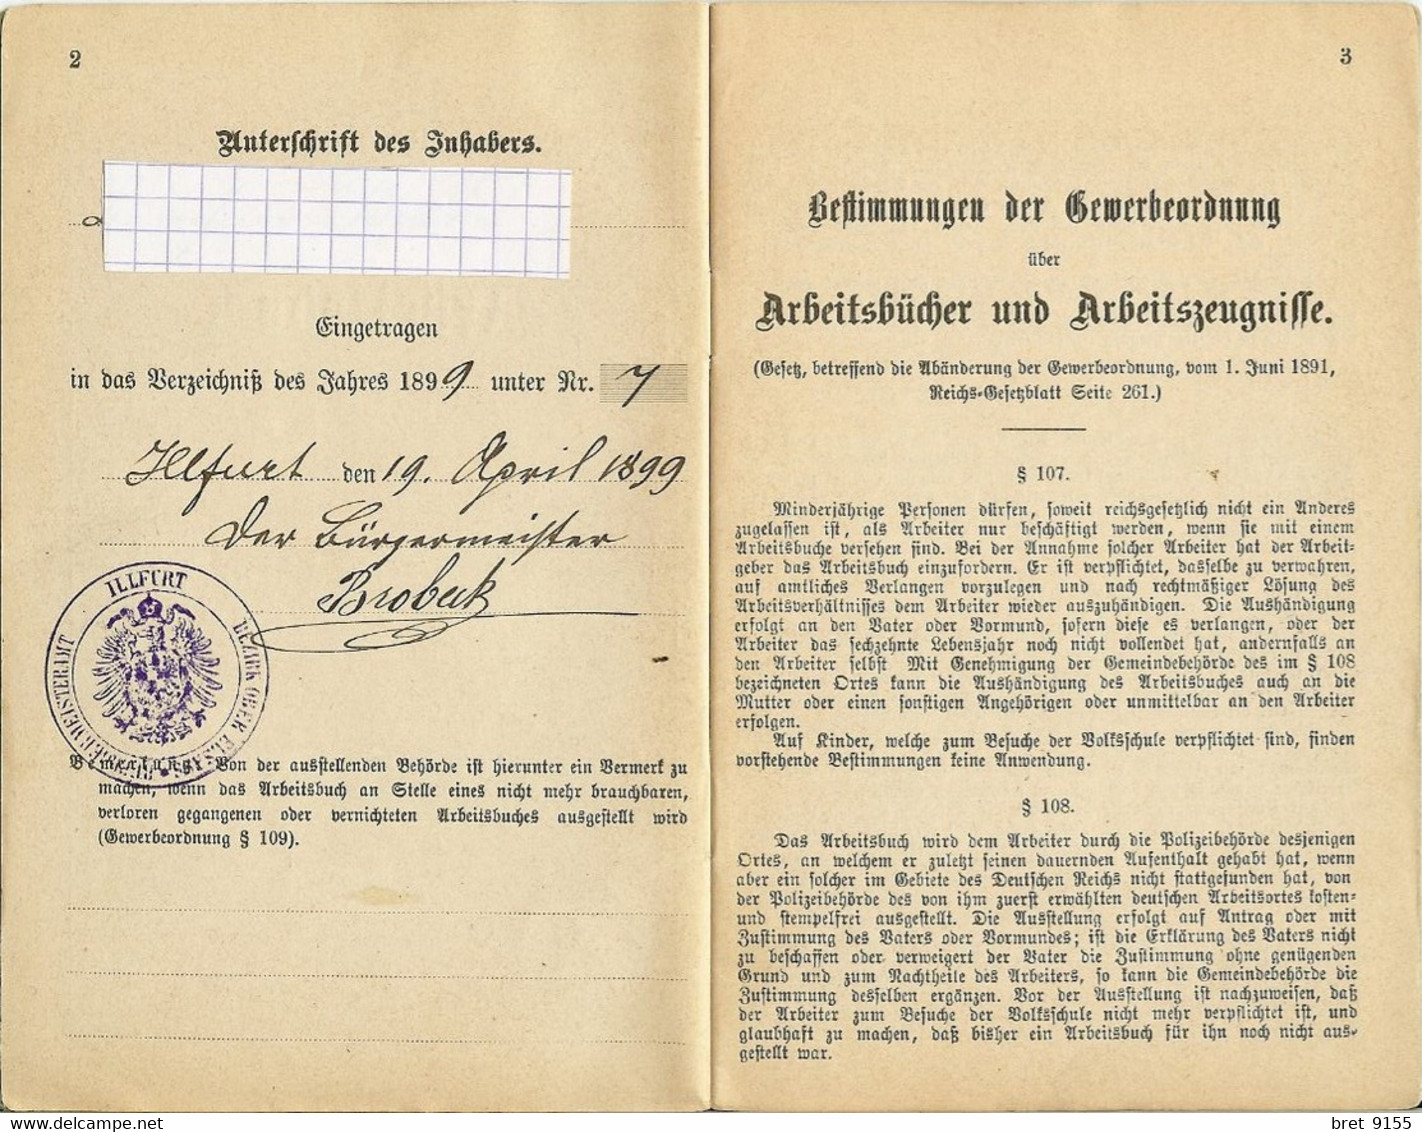 2
Unterschrift des Inhabers.
Eingetragen
in das Verzeichniß des Jahres 1899 unter Nr. 7
Illfurt den 19. April 1899
Der Bürgermeister
Brobeck
ILLFURT
BEZIRK OBER ELSASS
BÜRGERMEISTERAMT
Bemerkung. Von der ausstellenden Behörde ist hierunter ein Vermerk zu
machen, wenn das Arbeitsbuch an Stelle eines nicht mehr brauchbaren,
verloren gegangenen oder vernichteten Arbeitsbuches ausgestellt wird
(Gewerbeordnung § 109).
3
Bestimmungen der Gewerbeordnung
über
Arbeitsbücher und Arbeitszeugnisse.
(Gesetz, betreffend die Abänderung der Gewerbeordnung, vom 1. Juni 1891,
Reichs-Gesetzblatt Seite 261.)
§ 107.
Minderjährige Personen dürfen, soweit reichsgesetzlich nicht ein Anderes
zugelassen ist, als Arbeiter nur beschäftigt werden, wenn sie mit einem
Arbeitsbuche versehen sind. Bei der Annahme solcher Arbeiter hat der Arbeit-
geber das Arbeitsbuch einzufordern. Er ist verpflichtet, dasselbe zu verwahren,
auf amtliches Verlangen vorzulegen und nach rechtmäßiger Lösung des
Arbeitsverhältnisses dem Arbeiter wieder auszuhändigen. Die Aushändigung
erfolgt an den Vater oder Vormund, sofern diese es verlangen, oder der
Arbeiter das sechzehnte Lebensjahr noch nicht vollendet hat, andernfalls an
den Arbeiter selbst Mit Genehmigung der Gemeindebehörde des im § 108
bezeichneten Ortes kann die Aushändigung des Arbeitsbuches auch an die
Mutter oder einen sonstigen Angehörigen oder unmittelbar an den Arbeiter
erfolgen.
Auf Kinder, welche zum Besuche der Volksschule verpflichtet sind, finden
vorstehende Bestimmungen keine Anwendung.
§ 108.
Das Arbeitsbuch wird dem Arbeiter durch die Polizeibehörde desjenigen
Ortes, an welchem er zuletzt seinen dauernden Aufenthalt gehabt hat, wenn
aber ein solcher im Gebiete des Deutschen Reichs nicht stattgefunden hat, von
der Polizeibehörde des von ihm zuerst erwählten deutschen Arbeitsortes kosten-
und stempelfrei ausgestellt. Die Ausstellung erfolgt auf Antrag oder mit
Zustimmung des Vaters oder Vormundes; ist die Erklärung des Vaters nicht
zu beschaffen oder verweigert der Vater die Zustimmung ohne genügenden
Grund und zum Nachtheile des Arbeiters, so kann die Gemeindebehörde die
Zustimmung desselben ergänzen. Vor der Ausstellung ist nachzuweisen, daß
der Arbeiter zum Besuche der Volksschule nicht mehr verpflichtet ist, und
glaubhaft zu machen, daß bisher ein Arbeitsbuch für ihn noch nicht aus-
gestellt war.
www.delcampe.net
bret 9155